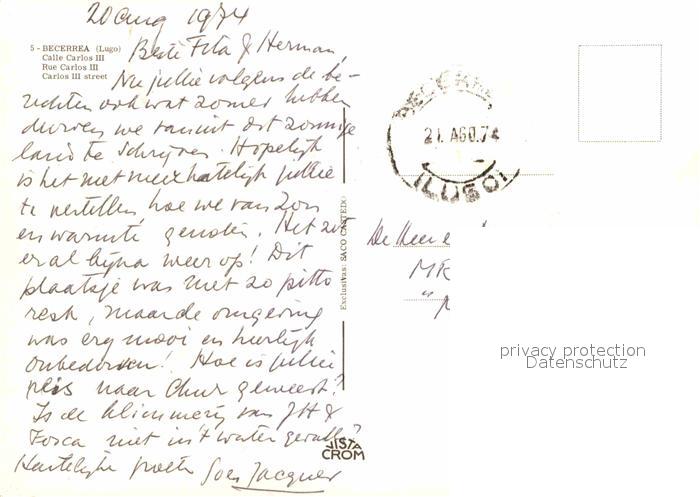 20 aug 1974
5 - BECERREA (Lugo)
Calle Carlos III
Rue Carlos III
Carlos III street
Beste Fita & Herman,
Nu jullie volgens de be-
richten ook wat zomer hebben
durven we vanuit dit zonnige
land te schrijven. Hopelijk
is het niet meer hatelijk jullie
te vertellen hoe we van zon
en warmte genoten. Het zit
er al bijna weer op! Dit
plaatsje was niet zo pitto
resk, maar de omgeving
was erg mooi en heerlijk
onbedorven! Hoe is jullie
reis naar Chur geweest?
Is de klimmerij van JH &
Tosca niet in 't water gevallen?
Hartelijke groeten Goes Jacques
Exclusivas: SACO CASTEDO
VISTA
CROM
BECERREA
21. AGO. 74
(LUGO)
De Heer e
MR
privacy protection
Datenschutz